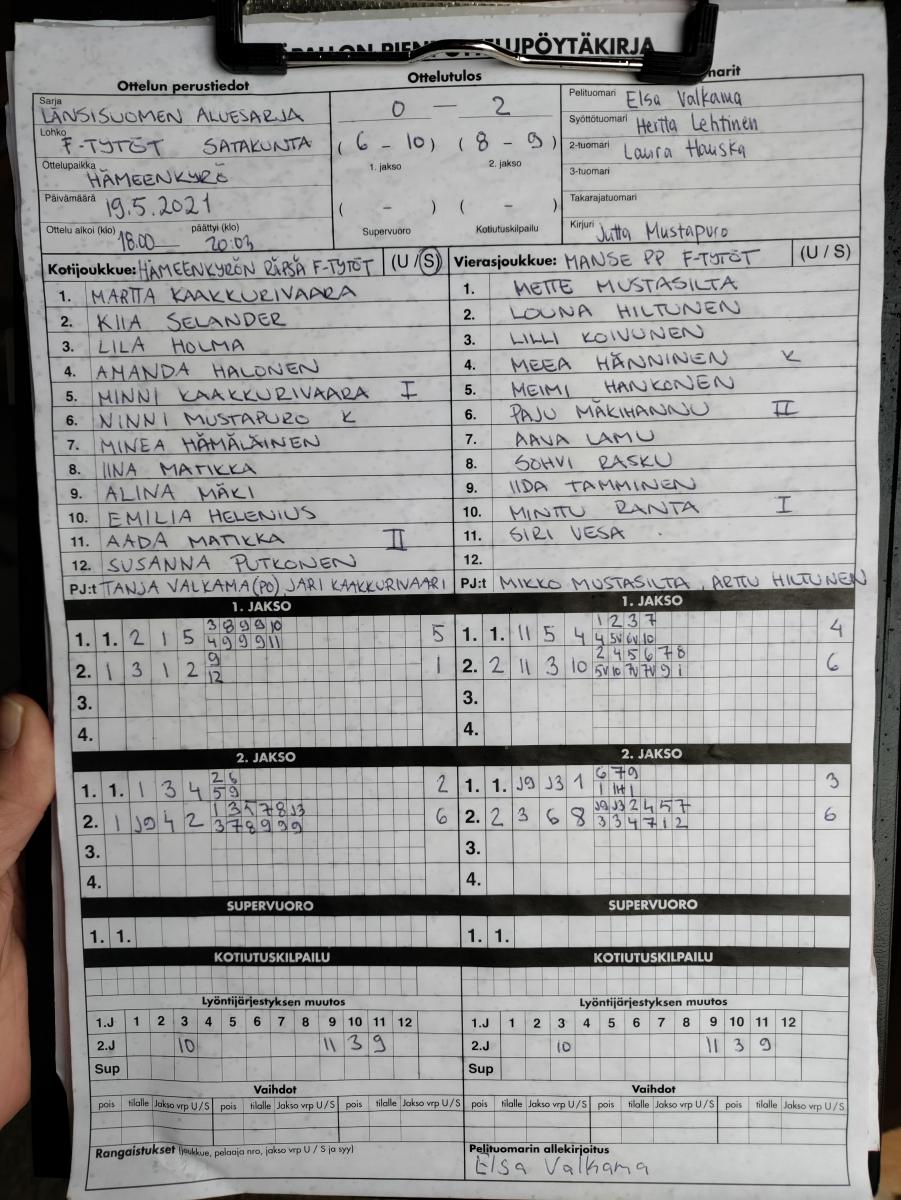 PIENPELIOTTELUPÖYTÄKIRJA
Ottelun perustiedot
Sarja
LÄNSISUOMEN ALUESARJA
Lohko
F-TYTÖT SATAKUNTA
Ottelupaikka
HÄMEENKYRÖ
Päivämäärä 19.5.2021
Ottelu alkoi (klo) 18.00 päättyi (klo) 20:03
Ottelutulos
0 - 2
( 6 - 10 ) ( 8 - 9 )
1. jakso 2. jakso
( - ) ( - )
Supervuoro Kotiutuskilpailu
Pelituomari Elsa Valkama
Syöttötuomari Hertta Lehtinen
2-tuomari Laura Hauska
3-tuomari
Takarajatuomari
Kirjuri Jutta Mustapuro
Kotijoukkue: HÄMEENKYRÖN RÄPSÄ F-TYTÖT (U / S)
1. MARTTA KAAKKURIVAARA
2. KIIA SELANDER
3. LILA HOLMA
4. AMANDA HALONEN
5. MINNI KAAKKURIVAARA I
6. NINNI MUSTAPURO K
7. MINEA HÄMÄLÄINEN
8. IINA MATIKKA
9. ALINA MÄKI
10. EMILIA HELENIUS
11. AADA MATIKKA II
12. SUSANNA PUTKONEN
PJ:t TANJA VALKAMA (PO) JARI KAAKKURIVAARI
Vierasjoukkue: MANSE PP F-TYTÖT (U / S)
1. METTE MUSTASILTA
2. LOUNA HILTUNEN
3. LILLI KOIVUNEN
4. MEEA HÄNNINEN K
5. MEIMI HANKONEN
6. PAJU MÄKIHANNU II
7. AAVA LAMU
8. SOHVI RASKU
9. IIDA TAMMINEN
10. MINTTU RANTA I
11. SIRI VESA
12.
PJ:t MIKKO MUSTASILTA, ARTTU HILTUNEN
1. JAKSO
3 8 9 9 10
1. 1. 2 1 5 4 9 9 9 11 5
9
2. 1 3 1 2 12 1
3.
4.
1. JAKSO
1 2 3 7
1. 1. 11 5 4 4 5V 6V 10 4
2 4 5 6 7 8
2. 2 11 3 10 5V 10 7V 7V 9 1 6
3.
4.
2. JAKSO
2 6
1. 1. 1 3 4 5 9 2
1 3 5 7 8 J3
2. 1 J9 4 2 3 7 8 9 9 9 6
3.
4.
2. JAKSO
6 7 9
1. 1. J9 J3 1 3
J9 J3 2 4 5 7
2. 2 3 6 8 3 3 4 7 1 2 6
3.
4.
SUPERVUORO
1. 1.
SUPERVUORO
1. 1.
KOTIUTUSKILPAILU
KOTIUTUSKILPAILU
Lyöntijärjestyksen muutos
1.J 1 2 3 4 5 6 7 8 9 10 11 12
2.J 10 11 3 9
Sup
Lyöntijärjestyksen muutos
1.J 1 2 3 4 5 6 7 8 9 10 11 12
2.J 10 11 3 9
Sup
Vaihdot
pois tilalle Jakso vrp U / S pois tilalle Jakso vrp U / S pois tilalle Jakso vrp U / S
Vaihdot
pois tilalle Jakso vrp U / S pois tilalle Jakso vrp U / S pois tilalle Jakso vrp U / S
Rangaistukset (joukkue, pelaaja nro, jakso vrp U / S ja syy)
Pelituomarin allekirjoitus
Elsa Valkama